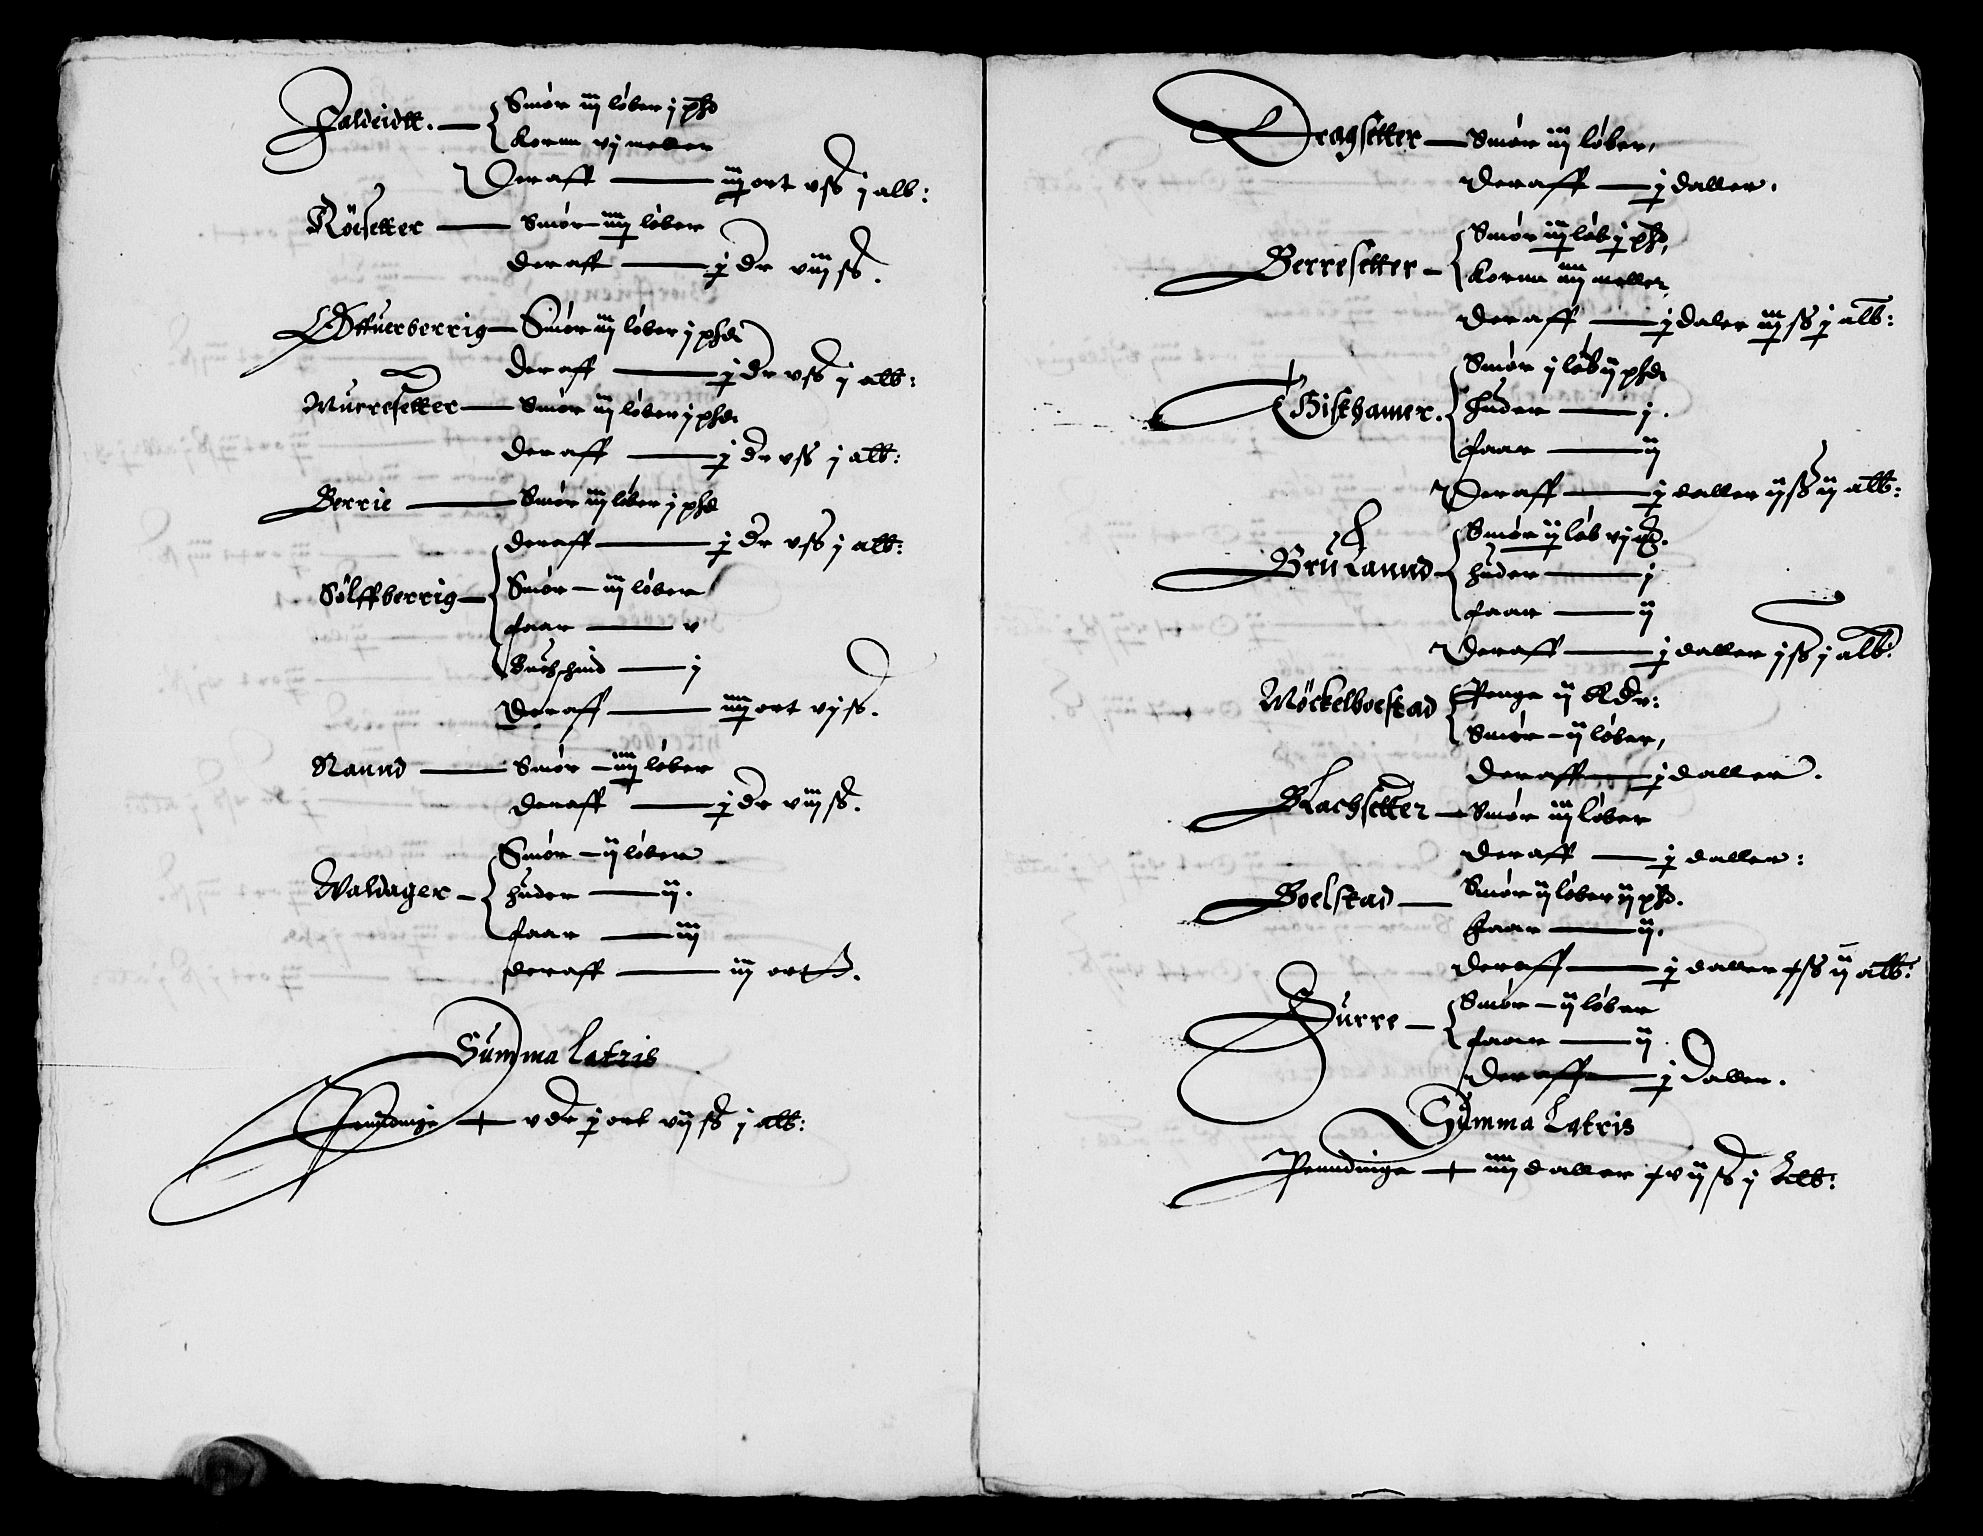 Faldeidtt. — Smør iij løber j pd
Kornn vj meller
Deraff — iiij ort v ß j alb:
Røesetter — Smør iiij løber
deraff — j dr viij ß.
Offuerberrig — Smør iij løber j pd
deraff — j dr v ß j alb:
Murresetter — Smør iij løber j pd
deraff — j dr v ß j alb:
Berrie — Smør iij løber j pd
deraff — j dr v ß j alb:
Sølffberrig — Smør — iij løber
faar — v
Buchschind — j
Deraff — iiij ort vj ß.
Naund — Smør — iiij løber
deraff — j dr viij ß.
Waldager — Smør — ij løber
huder — ij.
faar — iiij
deraff — iij ort
Summa Latris
Penndinge — v dr j ort vij ß j alb:
Dragsetter — Smør iij løber,
deraff — j daller.
Berresetter — Smør iij løb j pd,
Kornn iiij meller
deraff — j daler iij ß j alb:
Gisthamer. — Smør ij løb ij pd
huder — j.
faar — ij
Deraff — j daller ij ß ij alb:
Brulannd — Smør ij løb vj
huder — j
faar — ij
Deraff — j daller j ß j alb:
Møckelboestad — Penge ij Rdr:
Smør — ij løber,
deraff — j daller.
Blachsetter — Smør iij løber
deraff — j daller:
Boelstad — Smør ij løber ij pd.
faar — ij,
deraff — j daller ß ij alb:
Furre — Smør — ij løber
faar — ij
deraff — j Daller.
Summa Latris
Penndinge — iiij daller vij ß j alb: